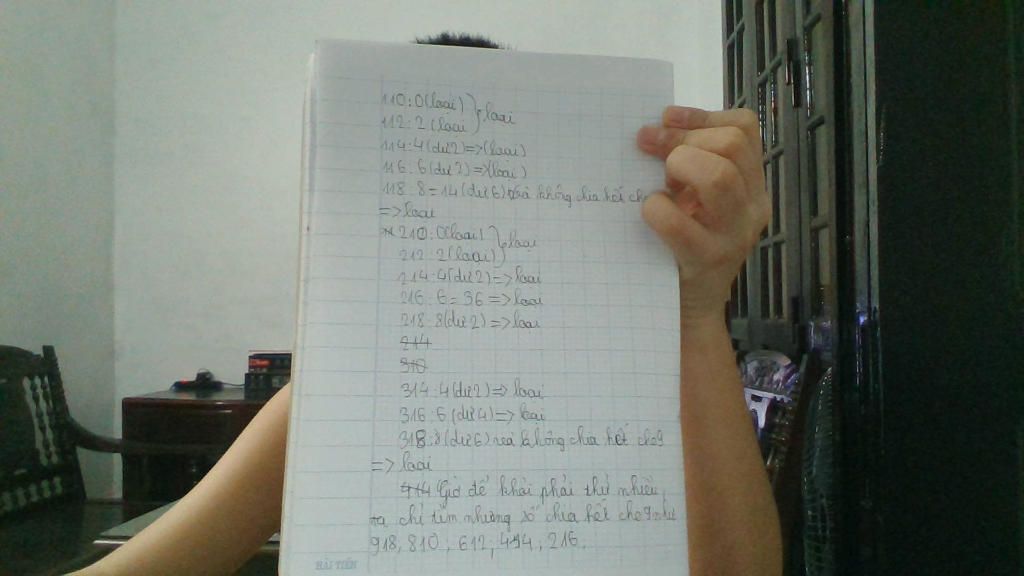 110:0(loại)
112:2(loại) } loại
114:4(dư2)=>(loại)
116:6(dư2)=>(loại)
118:8=14(dư6) và không chia hết cho
=> loại
* 210:0(loại)
212:2(loại) } loại
214:4(dư2)=> loại
216:6=36=> loại
218:8(dư2)=> loại
214
310
314:4(dư2)=> loại
316:6(dư4)=> loại
318:8(dư6) và không chia hết cho9
=> loại
414 Giờ để khỏi phải thử nhiều,
ta chỉ tìm những số chia hết cho9 như
918, 810, 612, 414, 216.
HẢI TIẾN